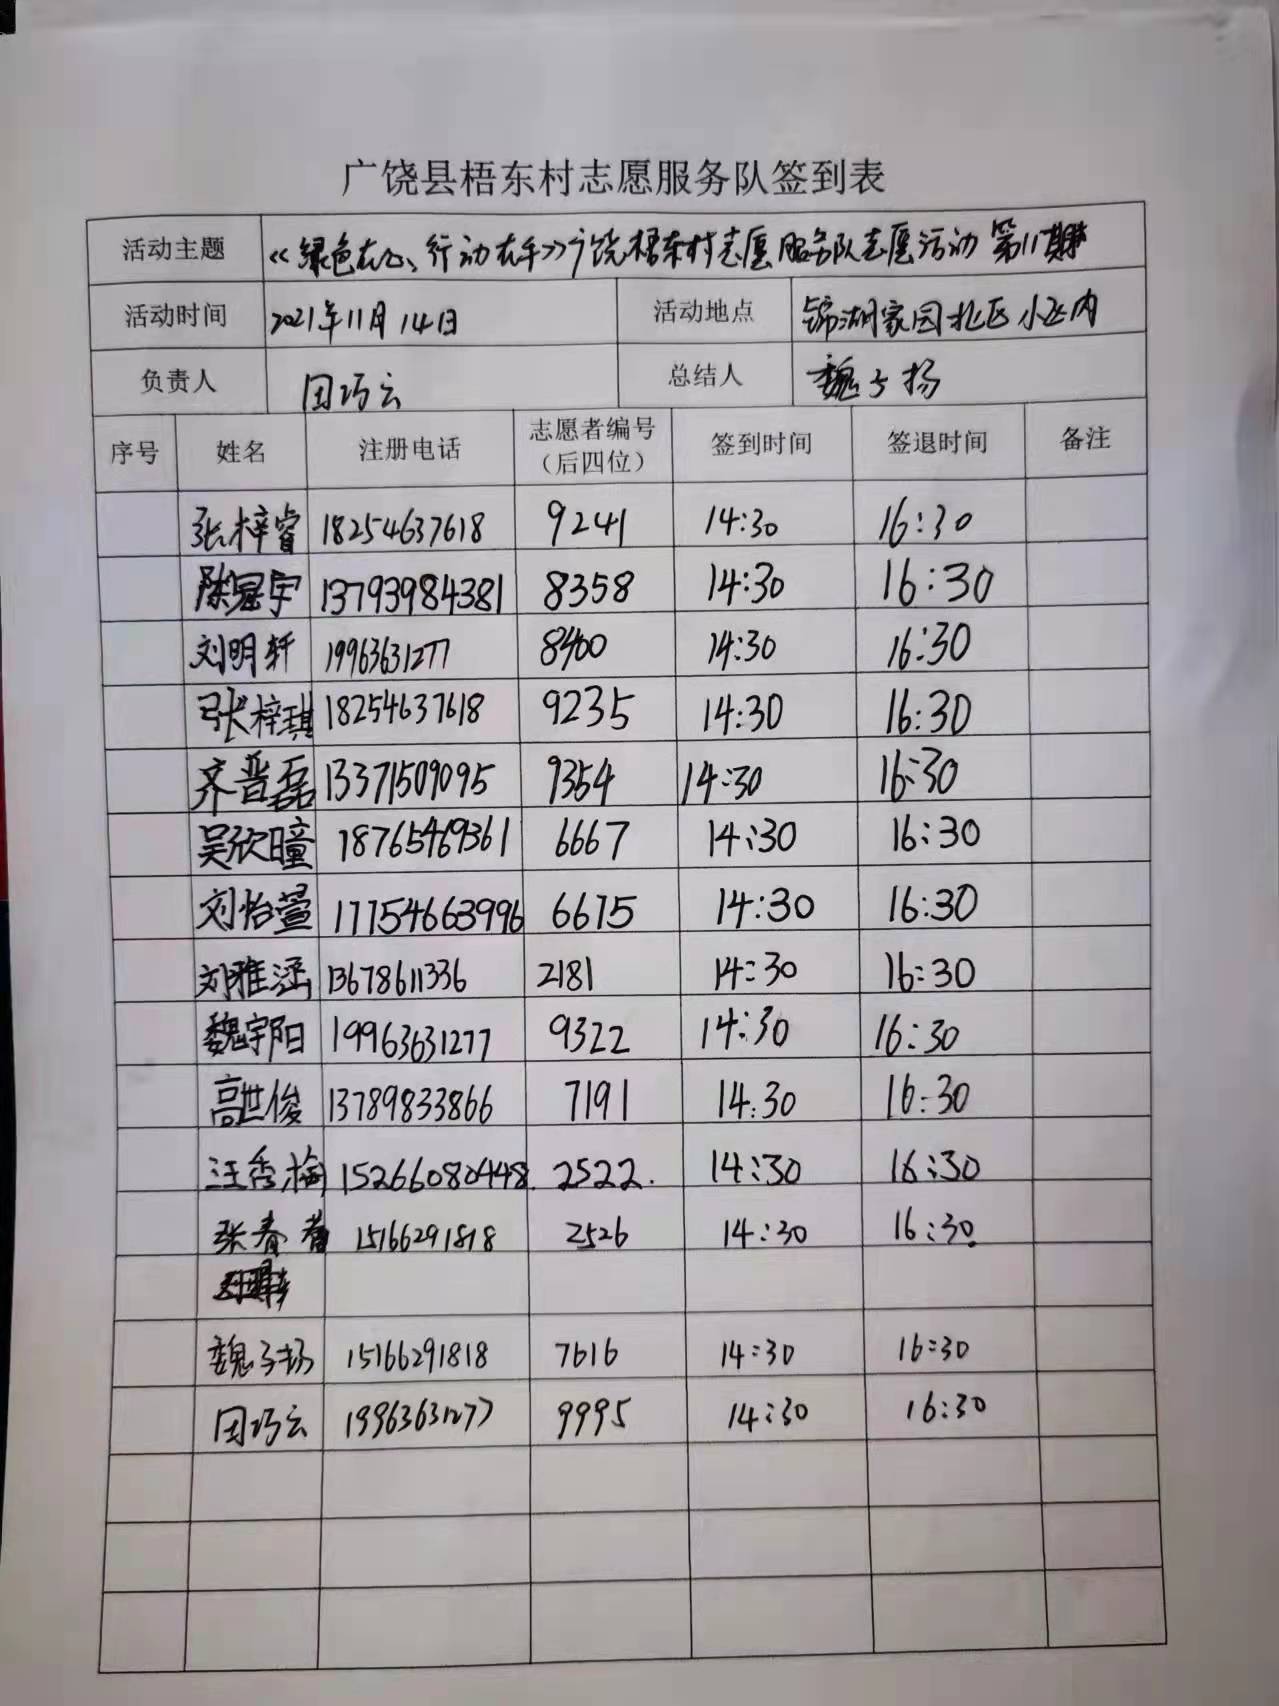 广饶县梧东村志愿服务队签到表
活动主题 《绿色在心、行动在手》广饶梧东村志愿服务队志愿活动 第11期
活动时间 2021年11月14日 活动地点 锦湖家园北区小区内
负责人 团巧云 总结人 魏子扬
序号 姓名 注册电话 志愿者编号（后四位） 签到时间 签退时间 备注
张梓睿 18254637618 9241 14:30 16:30
陈冠宇 13793984381 8358 14:30 16:30
刘明轩 19963631277 8400 14:30 16:30
张梓琪 18254637618 9235 14:30 16:30
齐晋磊 13371509095 9354 14:30 16:30
吴欣瞳 18765469361 6667 14:30 16:30
刘怡萱 17754663996 6675 14:30 16:30
刘雅涵 13678611336 2181 14:30 16:30
魏宇阳 19963631277 9322 14:30 16:30
高世俊 13789833866 7191 14:30 16:30
汪秀梅 15266080448. 2522. 14:30 16:30
张春 15166291818 2526 14:30 16:30.
魏子扬 15166291818 7616 14:30 16:30
团巧云 19963631277 9995 14:30 16:30